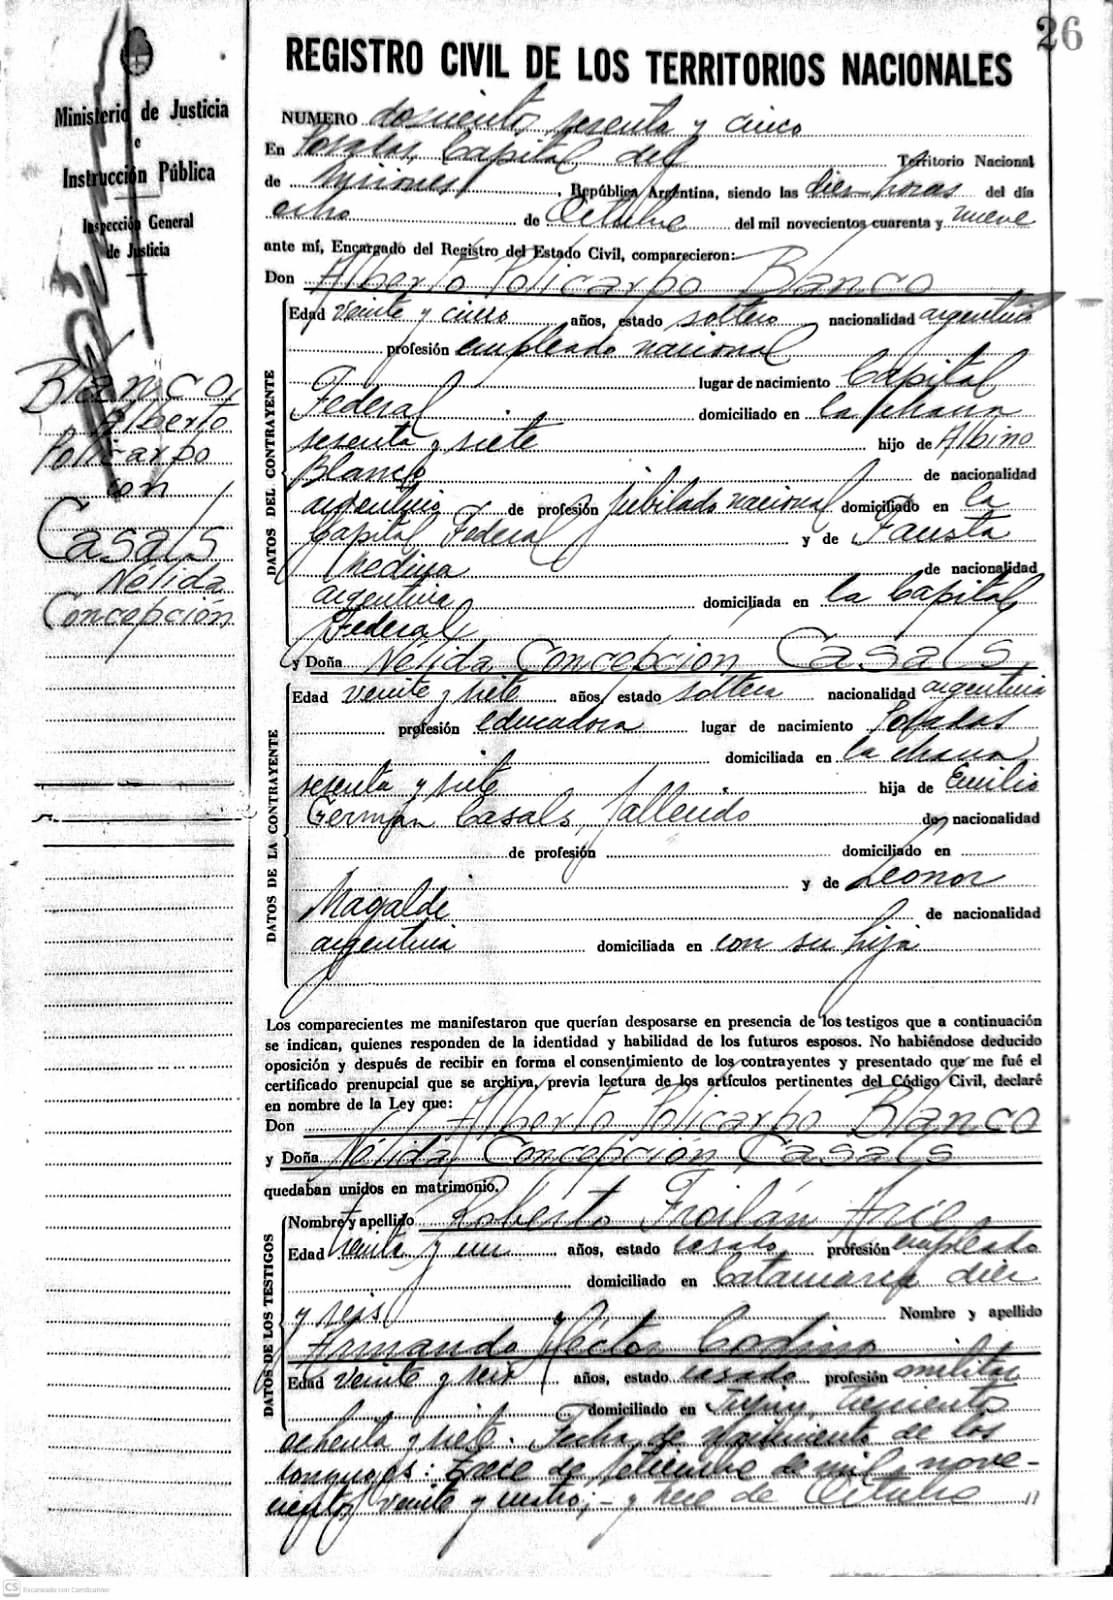 26
REGISTRO CIVIL DE LOS TERRITORIOS NACIONALES
Ministerio de Justicia
e
Instrucción Pública
Inspección General
de Justicia
Blanco
Alberto
Policarpo
con
Casals
Nélida
Concepción
NUMERO doscientos sesenta y cinco
En Posadas, Capital del Territorio Nacional
de Misiones, República Argentina, siendo las diez horas del día
ocho de Octubre del mil novecientos cuarenta y nueve
ante mí, Encargado del Registro del Estado Civil, comparecieron:
Don Alberto Policarpo Blanco
DATOS DEL CONTRAYENTE
Edad veinte y cinco años, estado soltero nacionalidad argentino
profesión empleado nacional
lugar de nacimiento Capital
Federal domiciliado en la chacra
sesenta y siete hijo de Albino
Blanco de nacionalidad
argentino de profesión jubilado nacional domiciliado en la
Capital Federal y de Fausta
Medina de nacionalidad
argentina domiciliada en la Capital
Federal
y Doña Nélida Concepción Casals
DATOS DE LA CONTRAYENTE
Edad veinte y siete años, estado soltera nacionalidad argentina
profesión educadora lugar de nacimiento Posadas
domiciliada en la chacra
sesenta y siete hija de Emilio
Germán Casals, fallecido de nacionalidad
de profesión domiciliado en
y de Leonor
Magaldi de nacionalidad
argentina domiciliada en con su hija
Los comparecientes me manifestaron que querían desposarse en presencia de los testigos que a continuación
se indican, quienes responden de la identidad y habilidad de los futuros esposos. No habiéndose deducido
oposición y después de recibir en forma el consentimiento de los contrayentes y presentado que me fué el
certificado prenupcial que se archiva, previa lectura de los artículos pertinentes del Código Civil, declaré
en nombre de la Ley que:
Don Alberto Policarpo Blanco
y Doña Nélida Concepción Casals
quedaban unidos en matrimonio.
DATOS DE LOS TESTIGOS
Nombre y apellido Roberto Froilán Arce
Edad treinta y un años, estado casado profesión empleado
domiciliado en Catamarca diez
y seis y Nombre y apellido
Armando Héctor Codino
Edad veinte y seis años, estado casado profesión militar
domiciliado en
ochenta y siete. Fecha de nacimiento de los
conyuges: Trece de setiembre de mil nove-
cientos veinte y cuatro; - y trece de Octubre
CS Escaneado con CamScanner